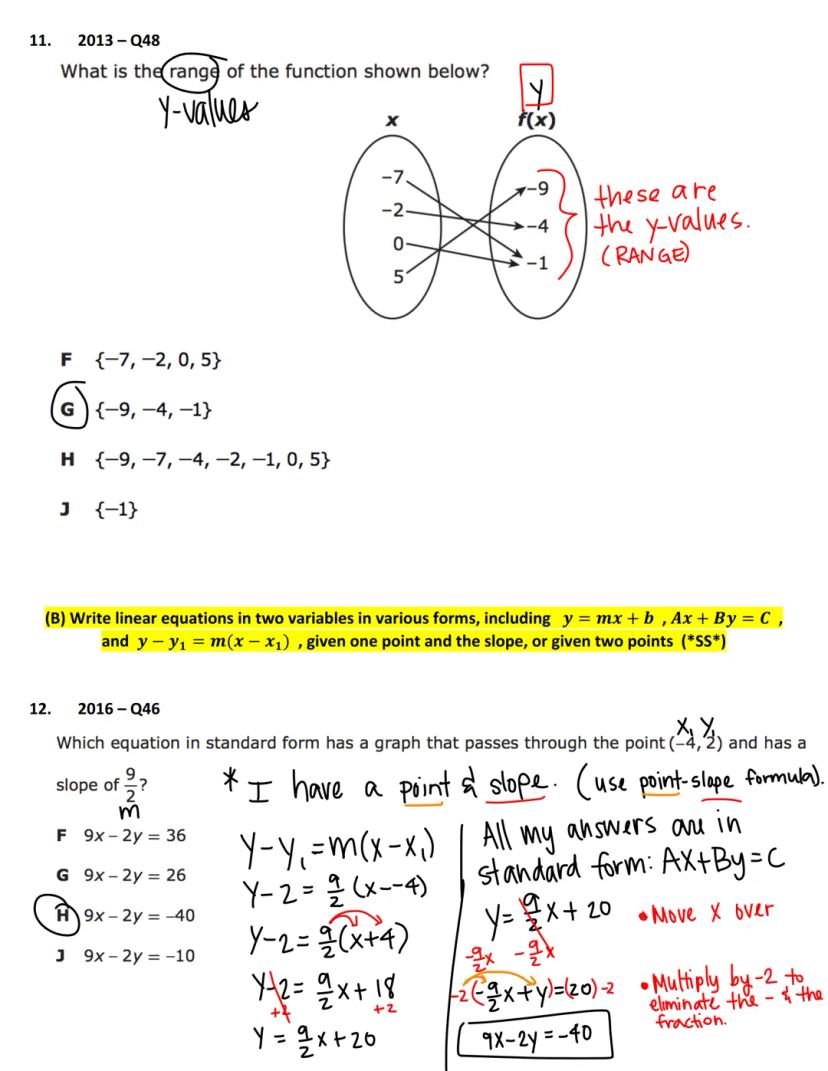 11. 2013 – Q48
What is the range of the function shown below?
y-values
y
x f(x)
−7
−2
0
5
−9
−4
−1
these are
the y-values.
(RANGE)
F {−7, −2, 0, 5}
G {−9, −4, −1}
H {−9, −7, −4, −2, −1, 0, 5}
J {−1}
(B) Write linear equations in two variables in various forms, including y = mx + b , Ax + By = C ,
and y − y₁ = m(x − x₁) , given one point and the slope, or given two points (*SS*)
12. 2016 – Q46
x₁ y₁
Which equation in standard form has a graph that passes through the point (−4, 2) and has a
slope of 9/2?
m
* I have a point & slope. (use point-slope formula).
F 9x – 2y = 36
G 9x – 2y = 26
H 9x – 2y = –40
J 9x – 2y = –10
y-y₁=m(x-x₁)
y-2= 9/2 (x--4)
y-2= 9/2(x+4)
y-2= 9/2x+18
+2 +2
y = 9/2x+20
All my answers are in
standard form: Ax+By=C
y= 9/2x+20 • Move x over
-9/2x -9/2x
-2(-9/2x+y)=(20)-2
• Multiply by -2 to
eliminate the - & the
fraction.
9x-2y=-40